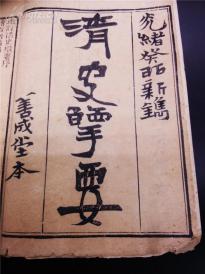 光緒癸卯新鐫
清史擥要
善成堂本